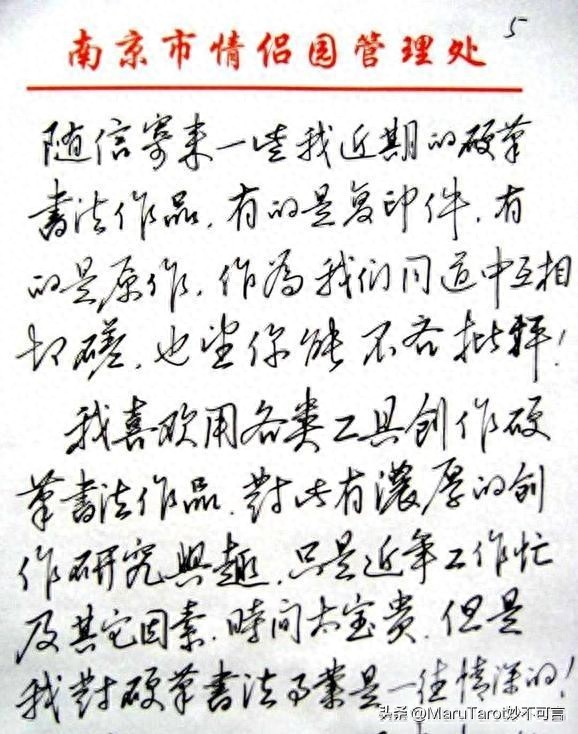 5
南京市情侣园管理处
随信寄来一些我近期的硬笔
書法作品，有的是复印件，有
的是原作，作為我们同道中互相
切磋，也望你能不吝批評！
我喜欢用各类工具创作硬
筆書法作品，對此有濃厚的创
作研究興趣，只是近年工作忙
及其它因素，時间太宝贵，但是
我對硬筆書法事業是一往情深的！
头条 @MaruTarot妙不可言